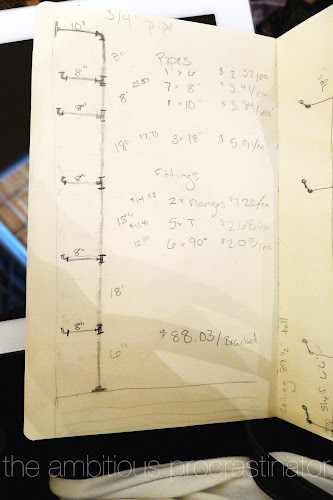 3/4 pipe
10"
8"
Pipes
1 x 6 $2.37/ea
8" 8" 23.87 7 x 8" $3.41/ea
8" 1 x 10" $3.84/ea
18" 17.73 3 x 18" $5.91/ea
8"
fittings
$14.52 2 x flanges
18" 5 x T $2.68/ea
6 x 90° $2.05/ea
8"
18"
8" $88.03/Bracket
6"
ceiling 89 1/2" tall
the ambitious procrastinator